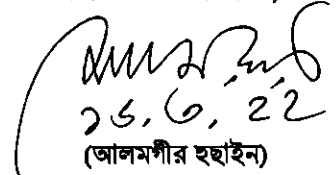 ১৬.৩.২২
(আলমগীর হুছাইন)